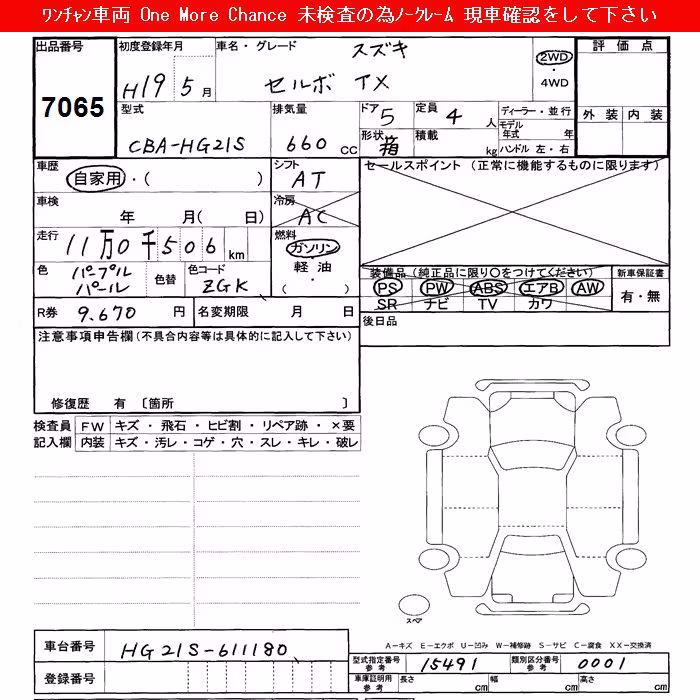 ﾜﾝﾁｬﾝ車両 One More Chance 未検査の為ﾉｰｸﾚｰﾑ 現車確認をして下さい
出品番号 初度登録年月 車名・グレード スズキ 評価点
7065 H19 5月 セルボ TX 2WD・4WD 外装 内装
型式 排気量 ドア 5 定員 4人 ディーラー・並行
CBA-HG21S 660cc 形状 箱 積載 kg モデル年式 年 ハンドル 左・右
車歴 自家用・( ) シフト AT セールスポイント (正常に機能するものに限ります)
車検 年 月( 日) 冷房 AC
走行 11万0千506km 燃料 ガソリン
色 パープルパール 色替 色コード ZGK 軽油・( )
装備品 (純正品に限り○をつけてください) 新車保証書
PS PW ABS エアB AW 有・無
SR ナビ TV カワ
R券 9.670円 名変期限 月 日 後日品
注意事項申告欄(不具合内容等は具体的に記入して下さい)
修復歴 有 〔箇所 〕
検査員 FW キズ・飛石・ヒビ割・リペア跡・×要
記入欄 内装 キズ・汚レ・コゲ・穴・スレ・キレ・破レ
スペア
A－キズ E－エクボ U－凹み W－補修跡 S－サビ C－腐食 XX－交換済
車台番号 HG21S-611180 型式指定番号 参考 15491 類別区分番号 参考 0001
登録番号 車庫証明用 参考 長さ cm 幅 cm 高さ cm